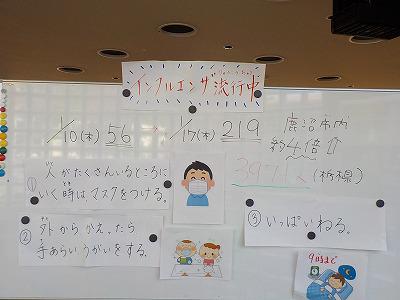 インフルエンザ流行中
りゅうこうちゅう
1/10(木) 56 → 1/17(木) 219
鹿沼市内
約4倍⇧
(栃県)
① 人がたくさんいるところに
いく時はマスクをつける。
② 外からかえったら
手あらいうがいをする。
③ いっぱいねる。
9時まで